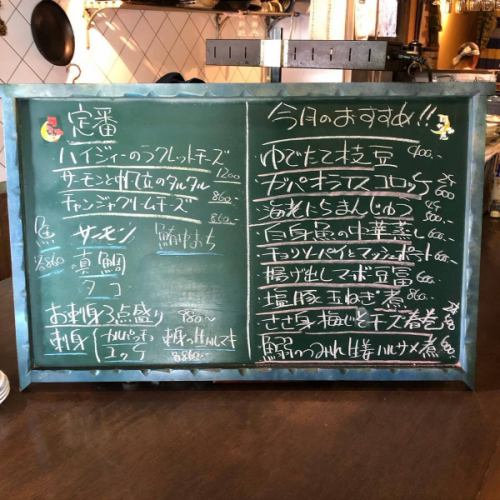 定番
ハイジィーのラクレットチーズ 1200
サーモンと帆立のタルタル 860
チャンジャクリームチーズ 560
魚 サーモン 鮪中まち
各860 真鯛
タコ
お刺身3点盛り 980〜
刺身 カルパッチョ
ユッケ
各860.-
今月のおすすめ!!
ゆでたて枝豆 400.-
ガパオライスコロッケ 2ケ 600
海老にらまんじゅう 500.-
白身魚の中華蒸し 600.-
キョフツパイとマッシュポテト 600.-
揚げ出しマーボ豆富 600.-
塩豚玉ねぎ煮 860.-
ささ身梅じそチーズ春巻
鰯のつみれ生姜ハルサメ煮 600.-